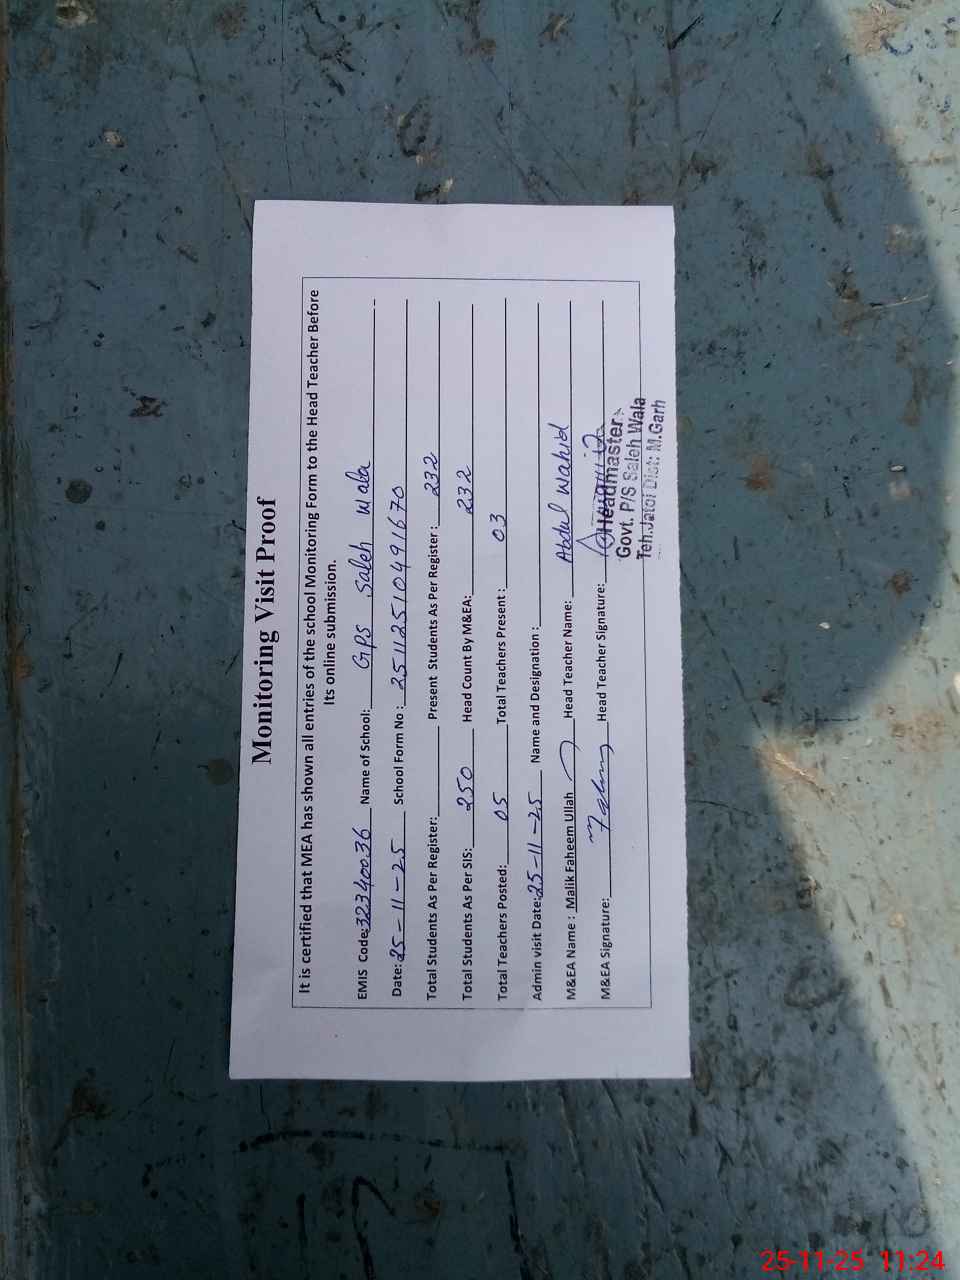 Monitoring Visit Proof
It is certified that MEA has shown all entries of the school Monitoring Form to the Head Teacher Before
Its online submission.
EMIS Code: 32340036 Name of School: GPS Saleh Wala
Date: 25-11-25 School Form No : 25112510491670
Total Students As Per Register: Present Students As Per Register : 232
Total Students As Per SIS: 250 Head Count By M&EA: 232
Total Teachers Posted: 05 Total Teachers Present : 03
Admin visit Date: 25-11-25 Name and Designation :
M&EA Name : Malik Faheem Ullah Head Teacher Name: Abdul Wahid
M&EA Signature: Head Teacher Signature:
Headmaster
Govt. P/S Saleh Wala
Teh.Jatoi Dist: M.Garh
25-11-25 11:24